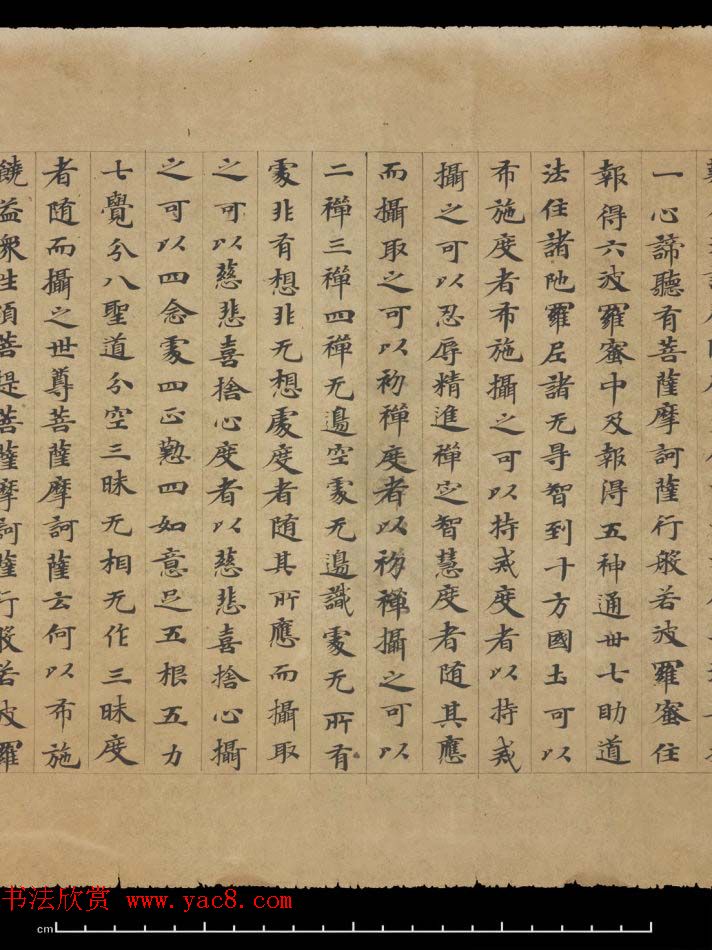 一心諦聽有菩薩摩訶薩行般若波羅蜜住
報得六波羅蜜中及報得五神通卅七助道
法住諸陁羅尼諸无㝵智到十方國土可以
布施度者布施攝之可以持戒度者以持戒
攝之可以忍辱精進禪㝎智慧度者随其應
而攝取之可以初禪度者以初禪攝之可以
二禪三禪四禪无邊空處无邊識處无所有
處非有想非无想處度者随其所應而攝取
之可以慈悲喜捨心度者以慈悲喜捨心攝
之可以四念處四正懃四如意足五根五力
七覺分八聖道分空三昧无相无作三昧度
者随而攝之世尊菩薩摩訶薩云何以布施
饒益衆生須菩提菩薩摩訶薩行般若波羅
书法欣赏 www.yac8.com
cm